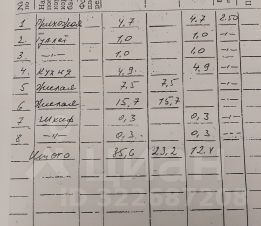 1 Прихожая 4,7 4,7 2.50
2 Туалет 1,0 1,0 -"-
3 -"- 1,0 1,0 -"-
4 Кухня 4,9 4,9 -"-
5 Жилая 7,5 7,5 -"-
6 Жилая 15,7 15,7 -"-
7 шкаф 0,3 0,3 -"-
8 -"- 0,3 0,3 -"-
Итого 35,6 23,2 12,4
ID 322687208